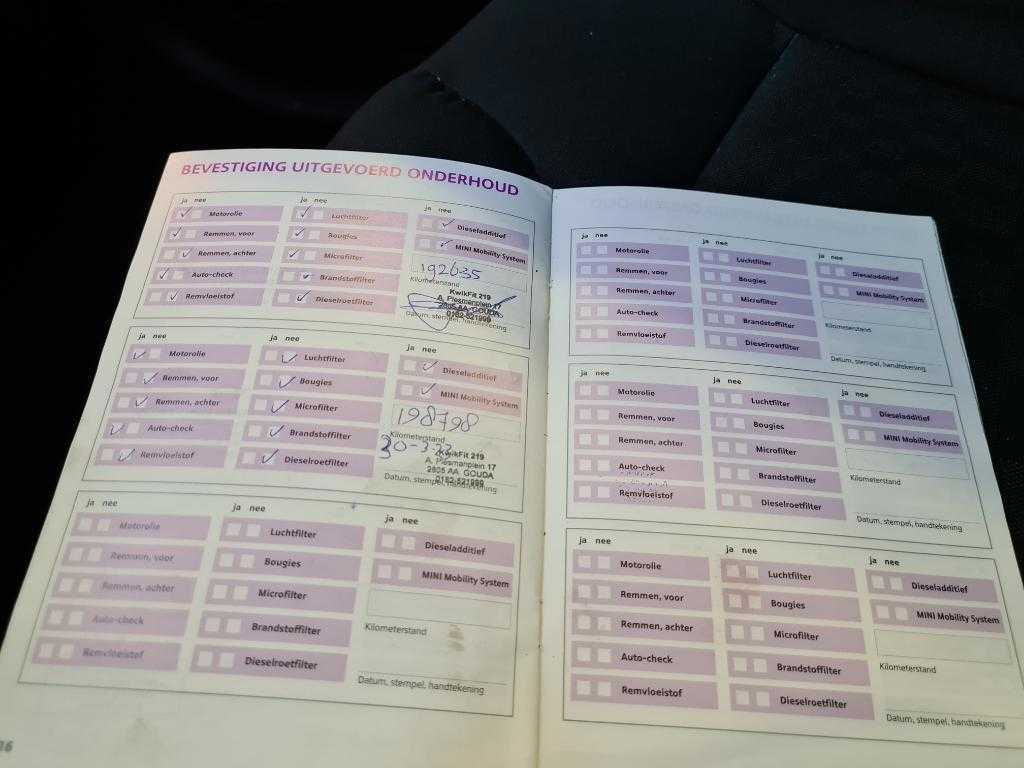 BEVESTIGING UITGEVOERD ONDERHOUD
ja nee
Motorolie
Remmen, voor
Remmen, achter
Auto-check
Remvloeistof
ja nee
Luchtfilter
Bougies
Microfilter
Brandstoffilter
Dieselroetfilter
ja nee
Dieseladditief
MINI Mobility System
192635
Kilometerstand
KwikFit 219
A. Plesmanplein 17
2805 AA GOUDA
0182-521999
Datum, stempel, handtekening
ja nee
Motorolie
Remmen, voor
Remmen, achter
Auto-check
Remvloeistof
ja nee
Luchtfilter
Bougies
Microfilter
Brandstoffilter
Dieselroetfilter
ja nee
Dieseladditief
MINI Mobility System
198798
Kilometerstand
KwikFit 219
A. Plesmanplein 17
2805 AA GOUDA
0182-521999
Datum, stempel, handtekening
ja nee
Motorolie
Remmen, voor
Remmen, achter
Auto-check
Remvloeistof
ja nee
Luchtfilter
Bougies
Microfilter
Brandstoffilter
Dieselroetfilter
ja nee
Dieseladditief
MINI Mobility System
Kilometerstand
Datum, stempel, handtekening
16
ja nee
Motorolie
Remmen, voor
Remmen, achter
Auto-check
Remvloeistof
ja nee
Luchtfilter
Bougies
Microfilter
Brandstoffilter
Dieselroetfilter
ja nee
Dieseladditief
MINI Mobility System
Kilometerstand
Datum, stempel, handtekening
ja nee
Motorolie
Remmen, voor
Remmen, achter
Auto-check
Remvloeistof
ja nee
Luchtfilter
Bougies
Microfilter
Brandstoffilter
Dieselroetfilter
ja nee
Dieseladditief
MINI Mobility System
Kilometerstand
Datum, stempel, handtekening
ja nee
Motorolie
Remmen, voor
Remmen, achter
Auto-check
Remvloeistof
ja nee
Luchtfilter
Bougies
Microfilter
Brandstoffilter
Dieselroetfilter
ja nee
Dieseladditief
MINI Mobility System
Kilometerstand
Datum, stempel, handtekening